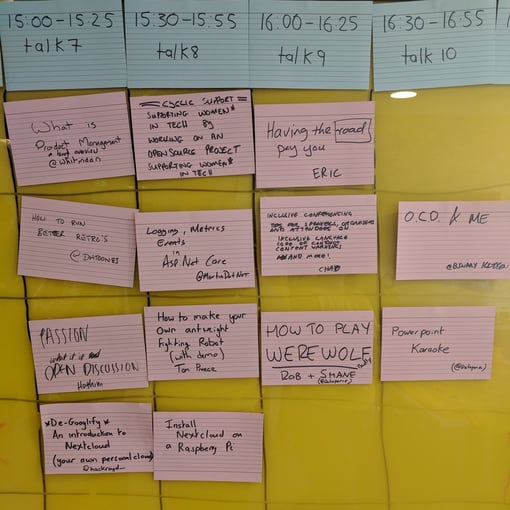 15:00-15:25
talk 7
15:30-15:55
talk 8
16:00-16:25
talk 9
16:30-16:55
talk 10
What is
Product Management
a brief overview
= CYCLIC SUPPORT =
SUPPORTING WOMEN*
IN TECH BY
WORKING ON AN
OPEN SOURCE PROJECT
SUPPORTING WOMEN*
IN TECH
Having the road
pay you
ERIC
HOW TO RUN
BETTER RETRO'S
Logging, Metrics
Events
in
Asp.Net Core
@MartinDotNet
INCLUSIVE CONFERENCING
FOR SPEAKERS, ORGANISERS
AND ATTENDEES ON
INCLUSIVE LANGUAGE
CODE OF CONDUCT
CONTENT WARNINGS
AND MORE!
O.C.D. & ME
PASSION
what it is
OPEN DISCUSSION
How to make your
Own antweight
Fighting Robot
(with demo)
Tom
HOW TO PLAY
WEREWOLF
ROB + SHANE
Powerpoint
Karaoke
*De-Googlify*
An introduction to
Nextcloud
(your own personal cloud)
Install
Nextcloud on
a Raspberry Pi